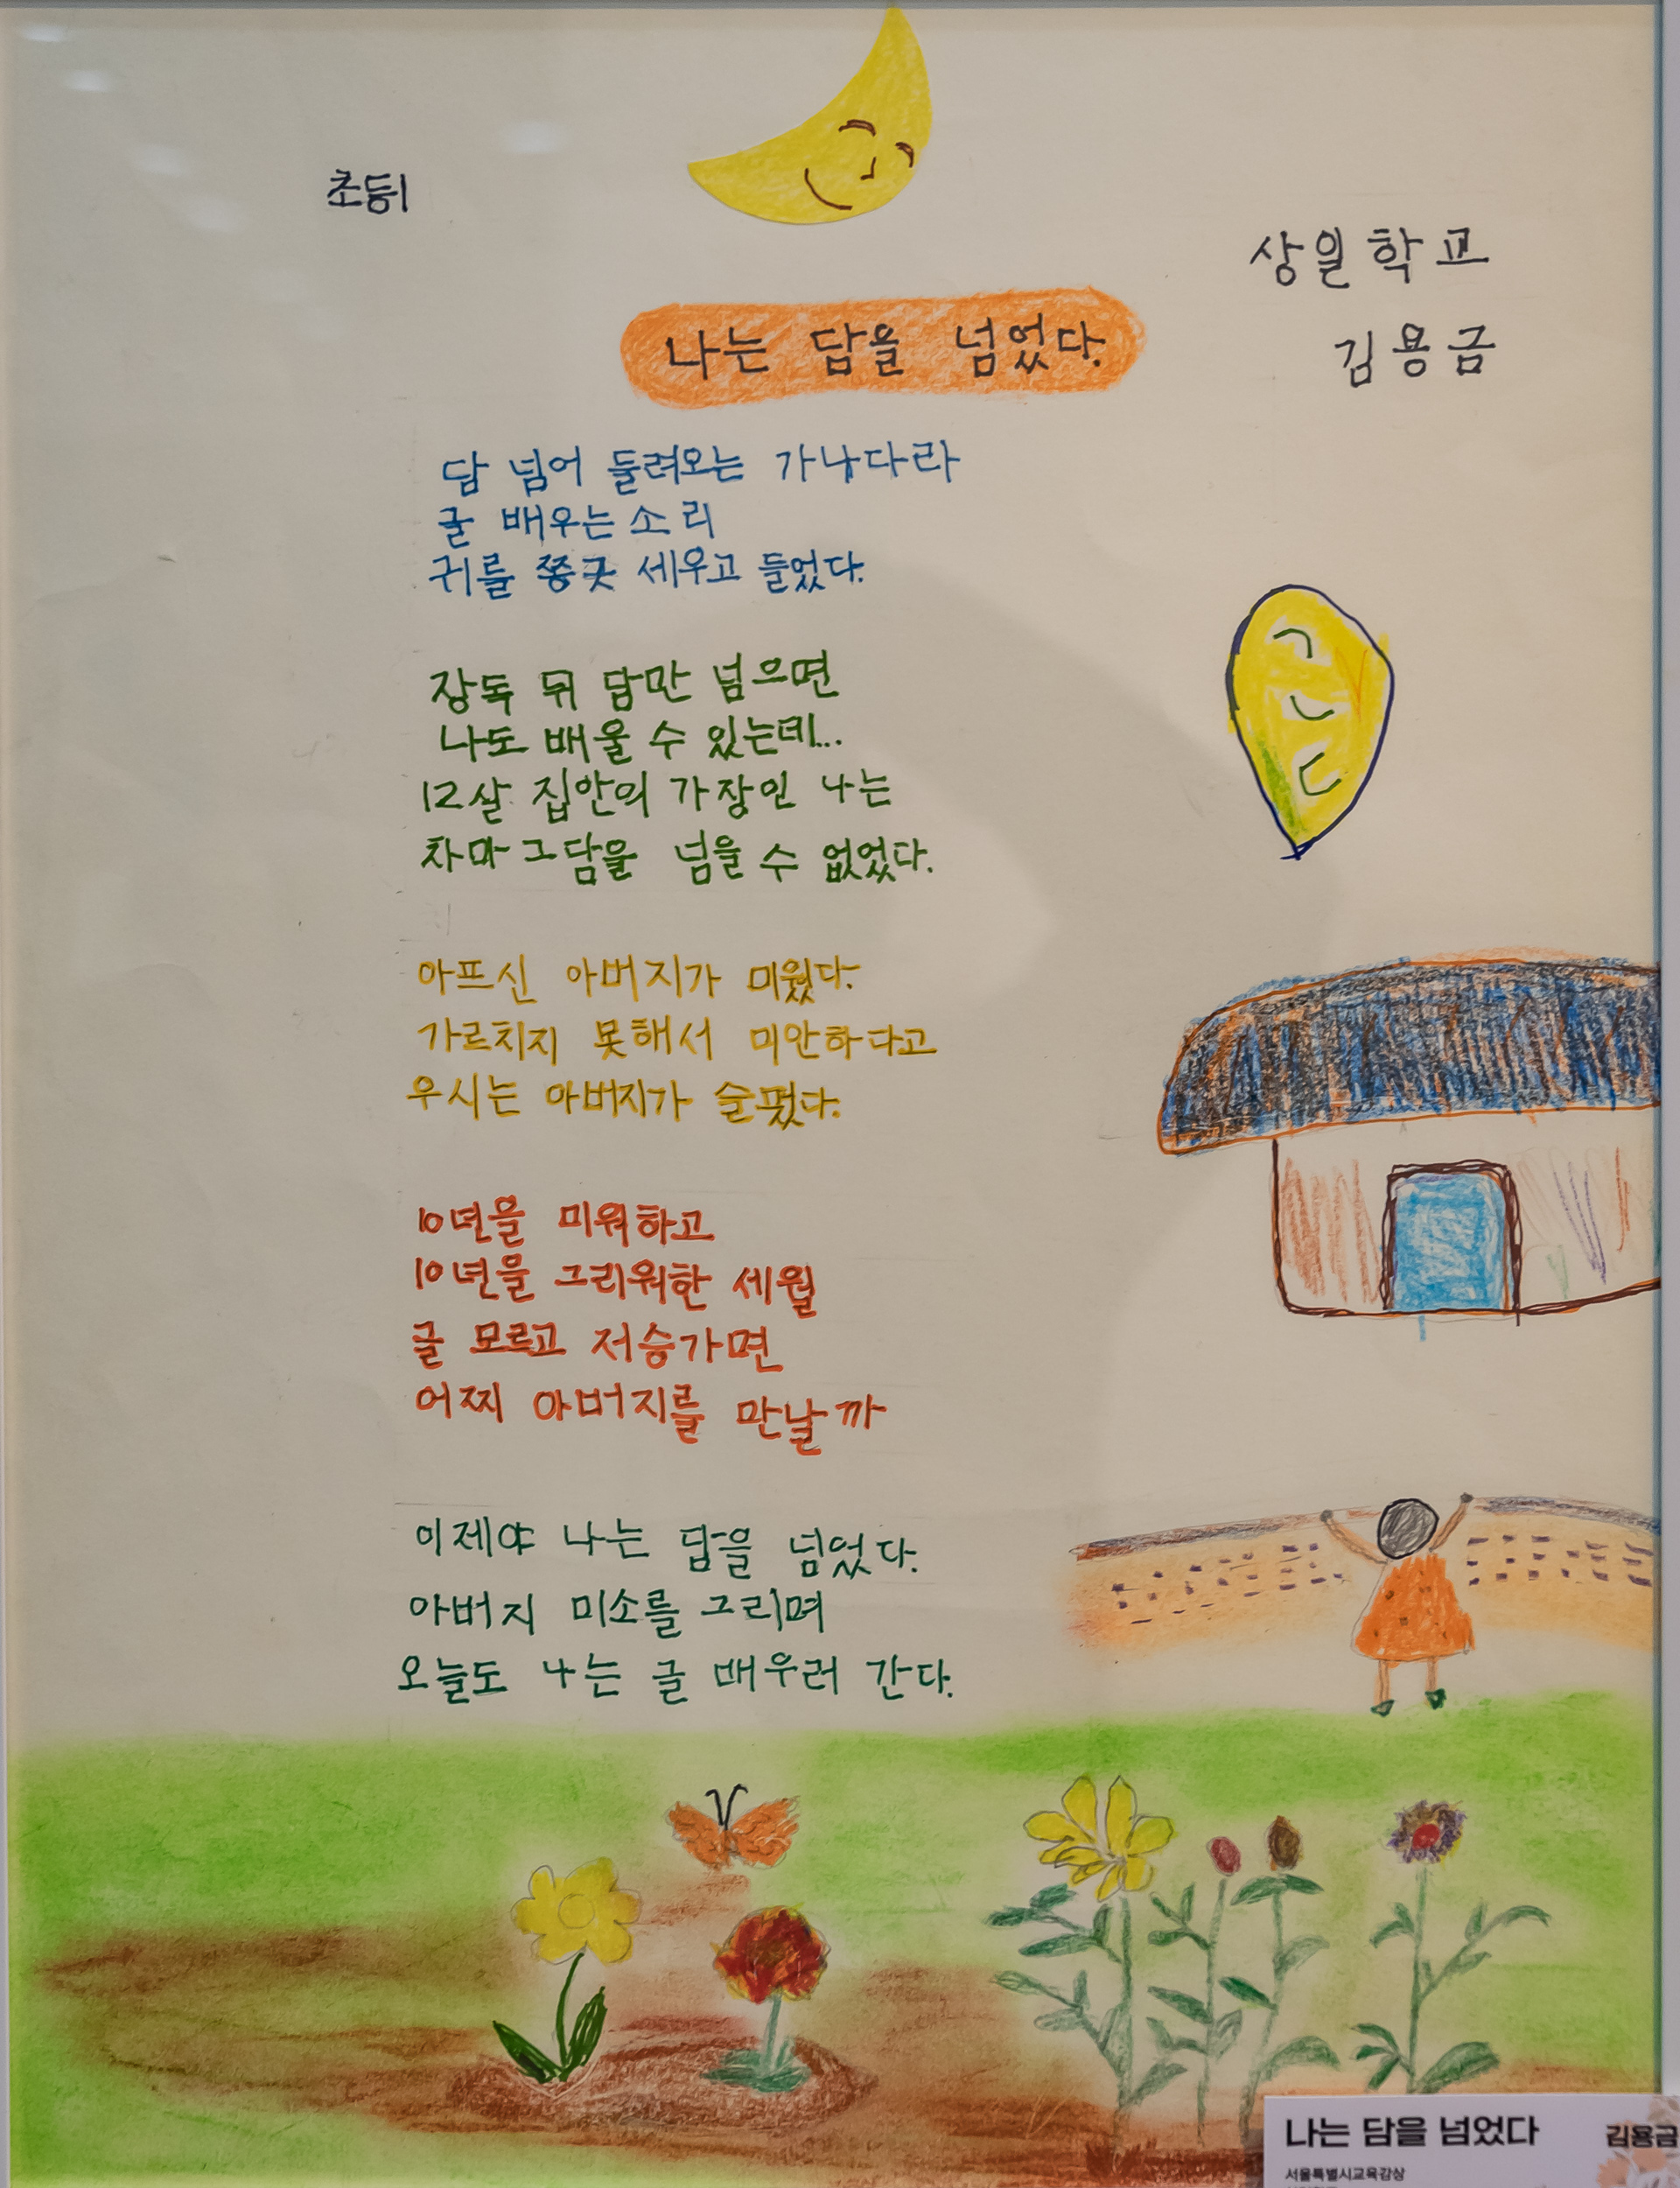 초등1
상일학교
김용금
나는 담을 넘었다.
담 넘어 들려오는 가나다라
글 배우는 소리
귀를 쫑긋 세우고 들었다.
장독 뒤 담만 넘으면
나도 배울 수 있는데...
12살 집안의 가장인 나는
차마 그담을 넘을 수 없었다.
아프신 아버지가 미웠다.
가르치지 못해서 미안하다고
우시는 아버지가 슬펐다.
10년을 미워하고
10년을 그리워한 세월
글 모르고 저승가면
어찌 아버지를 만날까
이제야 나는 담을 넘었다.
아버지 미소를 그리며
오늘도 나는 글 배우러 간다.
ㄱ
ㄴ
ㄷ
나는 담을 넘었다 김용금
서울특별시교육감상